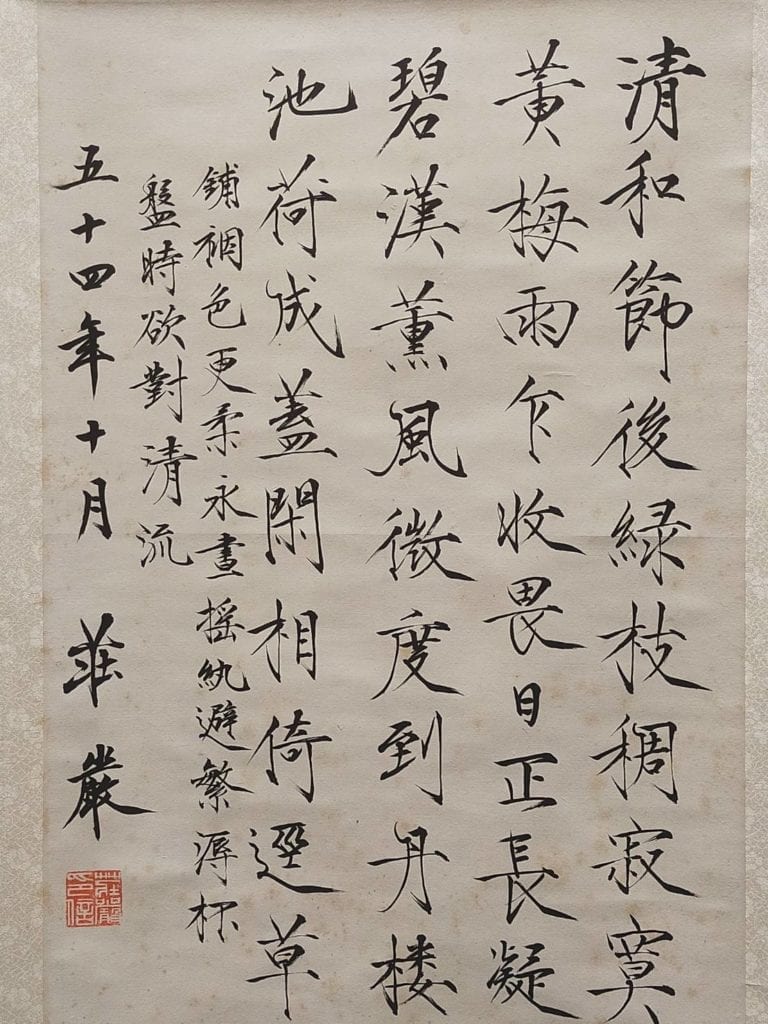 清和節後綠枝稠寂寞
黃梅雨乍收畏日正長凝
碧漢薰風微度到丹楼
池荷成蓋閑相倚逕草
鋪裀色更柔永晝搖紈避繁溽杯
盤時欲對清流
五十四年十月 莊嚴
莊嚴印信